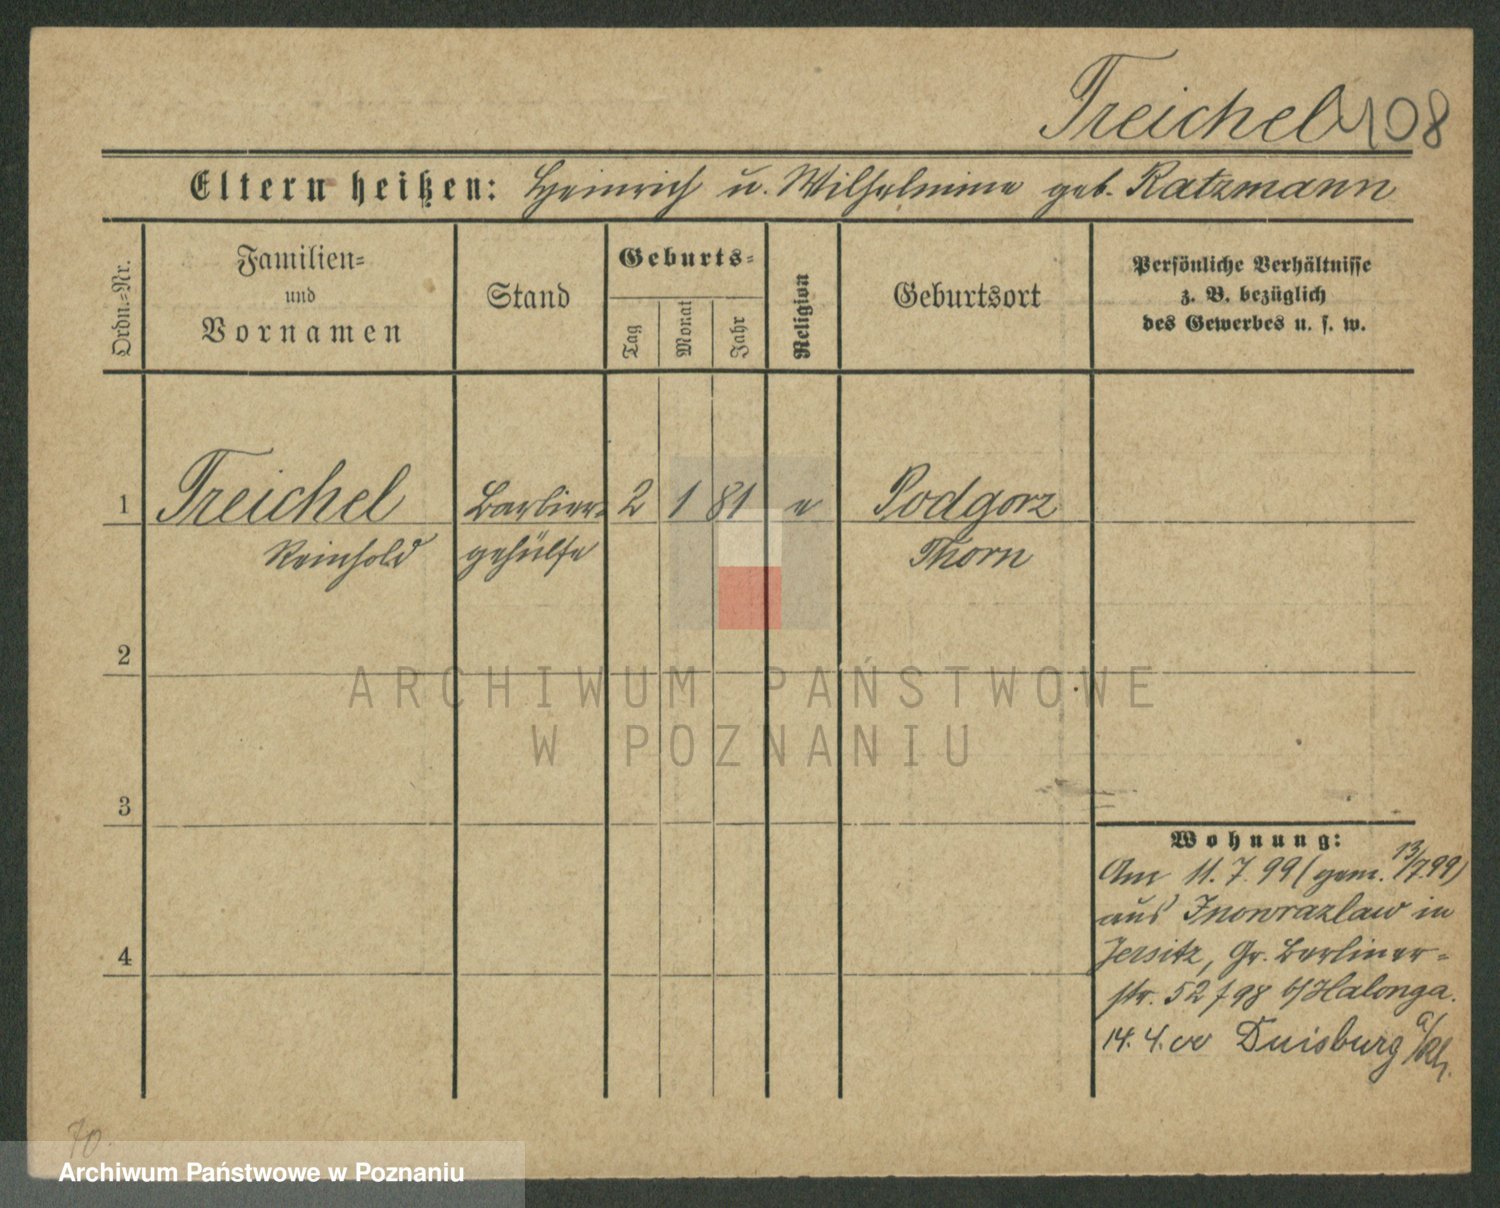 Treichel 108
Eltern heißen: Heinrich u. Wilhelmine geb. Ratzmann
Ordn.-Nr.
Familien-
und
Vornamen
Stand
Geburts-
Tag
Monat
Jahr
Religion
Geburtsort
Persönliche Verhältnisse
z. B. bezüglich
des Gewerbes u. s. w.
1 Treichel Barbier- 2 1 81 e Podgorz
Reinhold gehülfe Thorn
2
3
4
Wohnung:
Am 11.7.99 (gem. 13/7.99)
aus Inowrazlaw in
Jersitz, Gr. Berliner-
str. 52/98 b/Halonga.
14.4.00 Duisburg a/Rh.
70.
ARCHIWUM PAŃSTWOWE
W POZNANIU
Archiwum Państwowe w Poznaniu